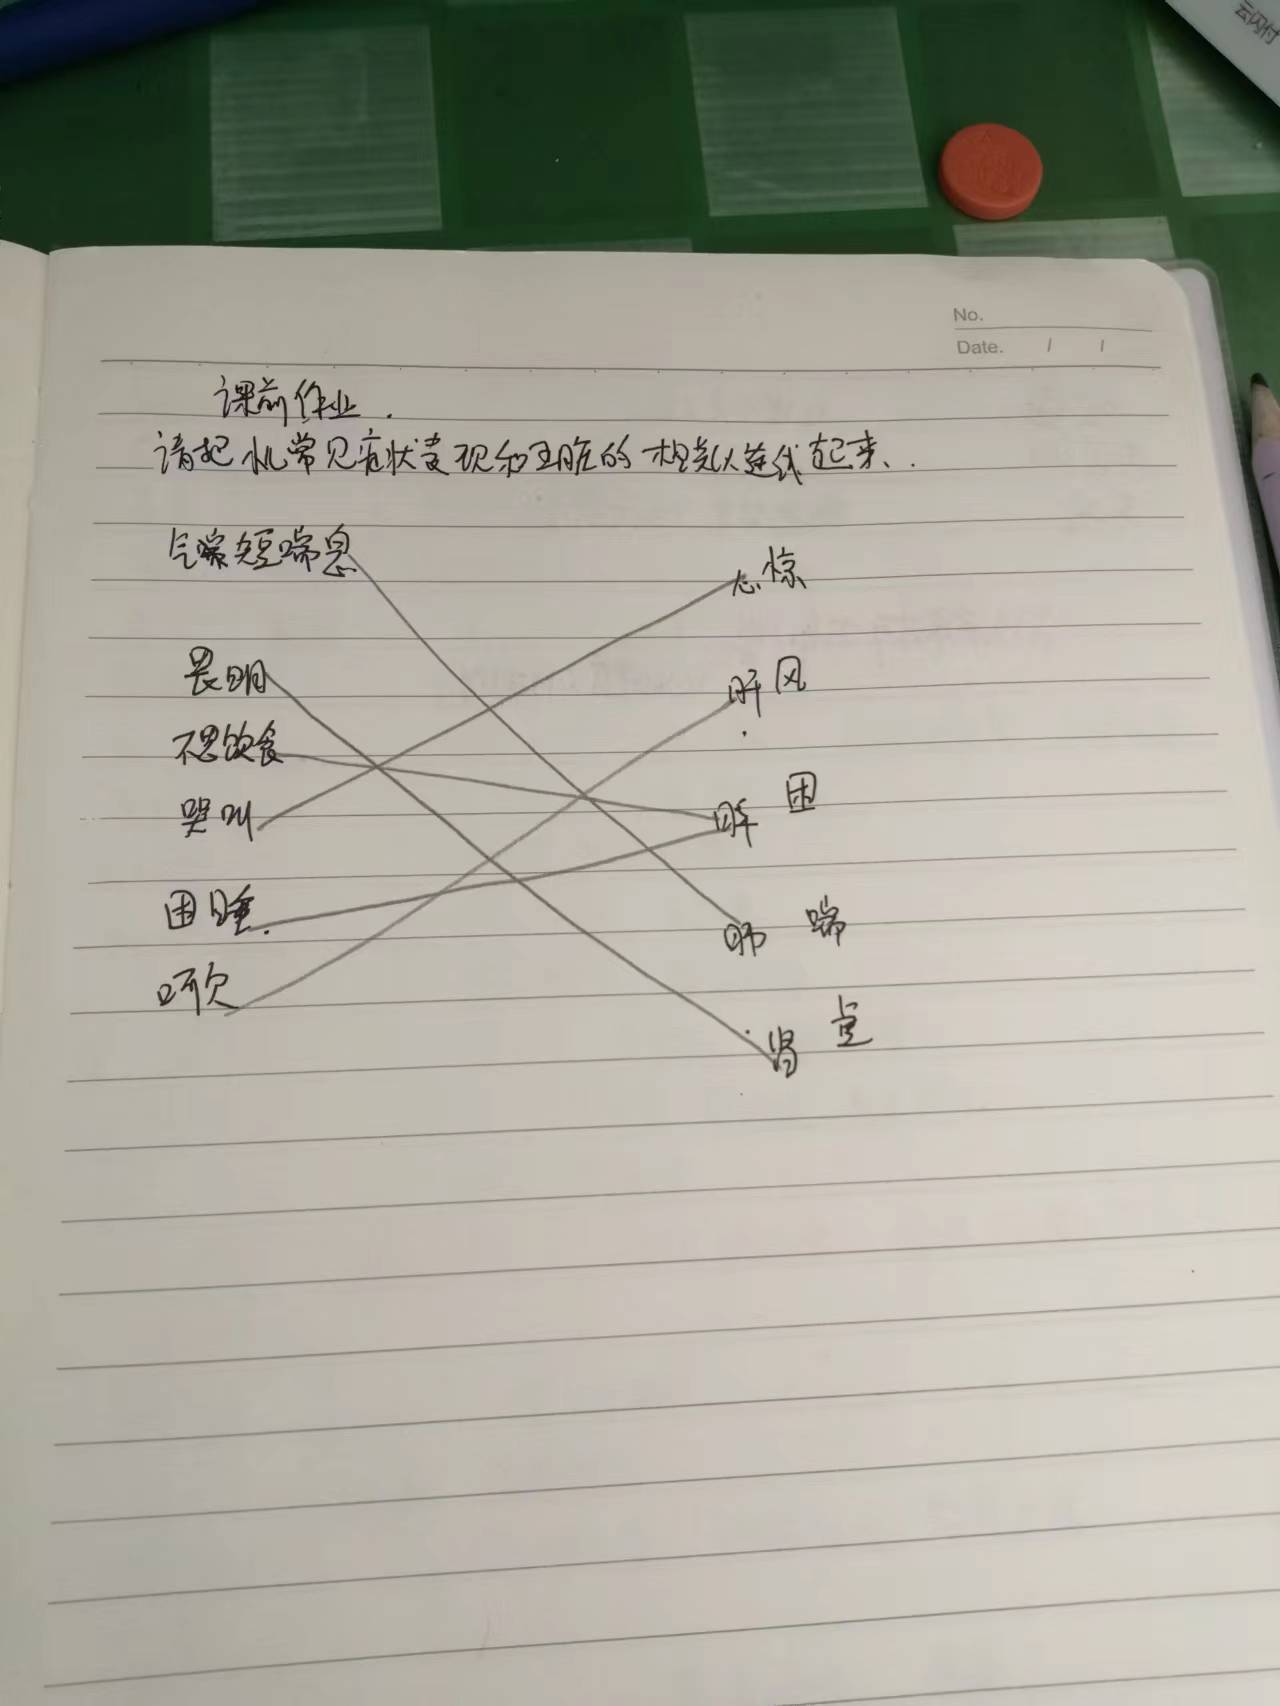 云闪付
No.
Date. / /
课前作业.
请把小儿常见症状表现和五脏的相关以连线起来.
气喘短喘息
心惊
畏明
肝风
不思饮食
哭叫
脾 困
困睡.
肺 喘
呵欠
肾 虚